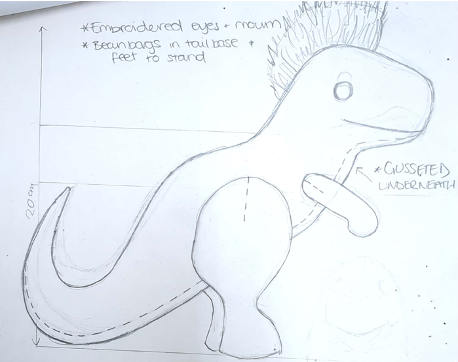 *Embroidered eyes + mouth
*Beanbags in tail base +
feet to stand
*GUSSETED
UNDERNEATH
20cm